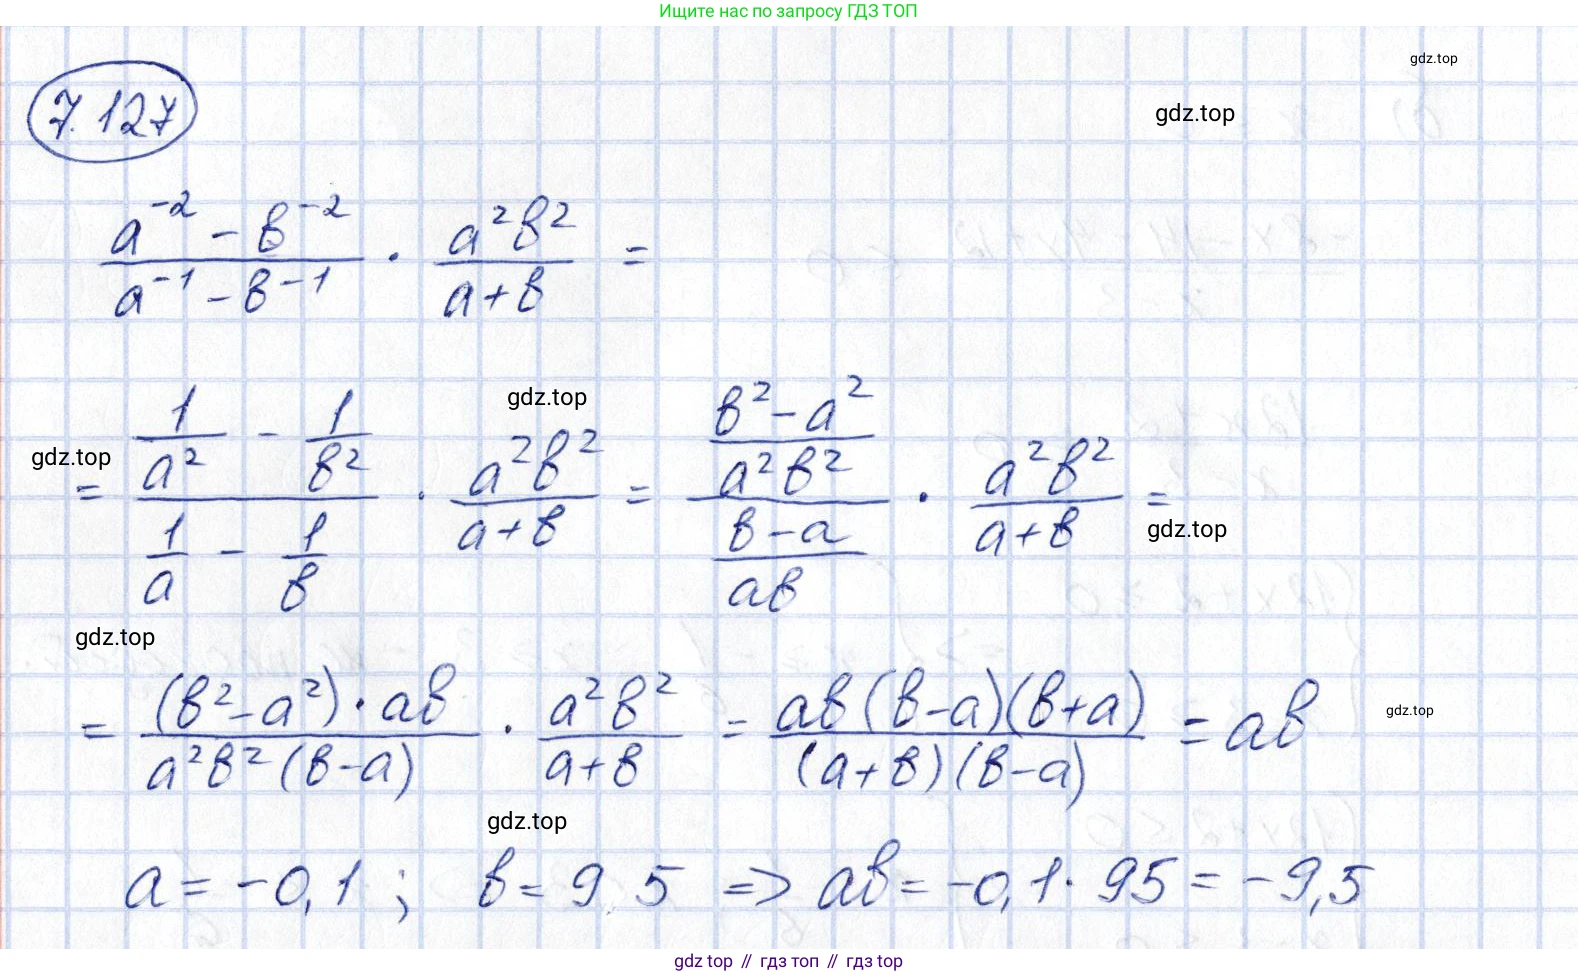 Ищите нас по запросу ГДЗ ТОП
gdz.top
gdz.top
7.127
(a⁻² - b⁻²)/(a⁻¹ - b⁻¹) · (a²b²)/(a+b) =
gdz.top
gdz.top
= (1/a² - 1/b²)/(1/a - 1/b) · (a²b²)/(a+b) = ((b²-a²)/(a²b²))/((b-a)/(ab)) · (a²b²)/(a+b) =
gdz.top
gdz.top
= ((b²-a²)·ab)/(a²b²(b-a)) · (a²b²)/(a+b) = (ab(b-a)(b+a))/((a+b)(b-a)) = ab
gdz.top
gdz.top
a = -0,1; b = 95 => ab = -0,1·95 = -9,5
gdz top // гдз топ // гдз top